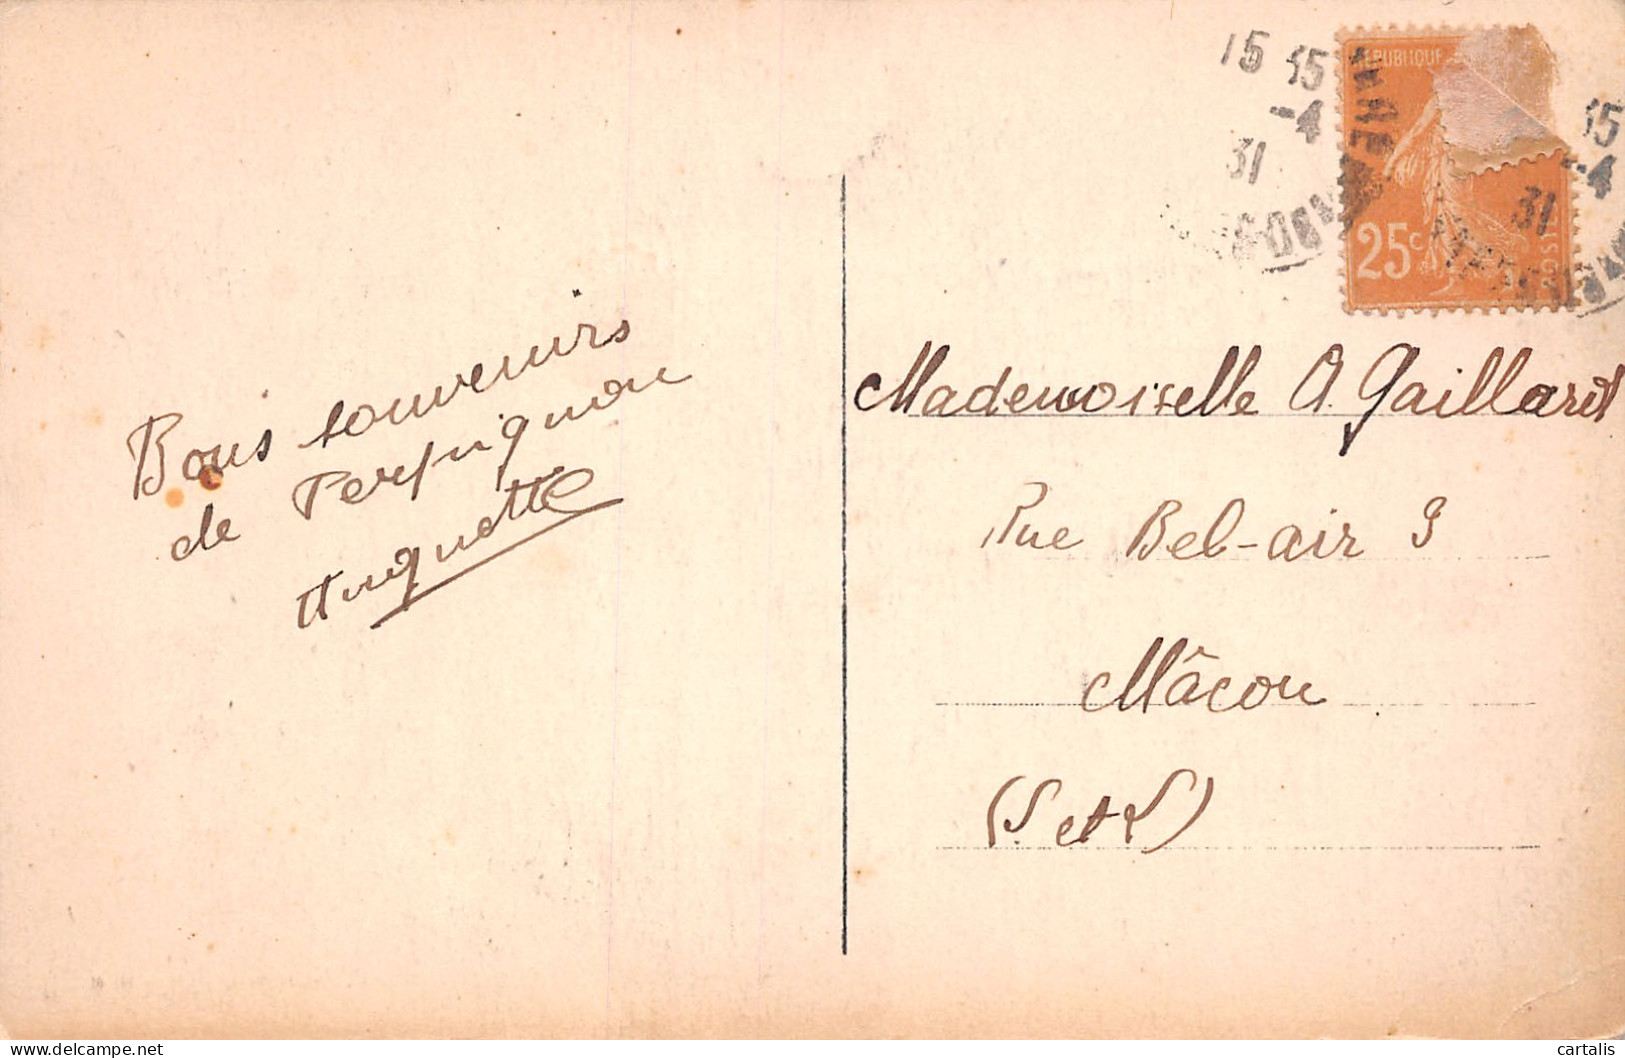 Bons souvenirs
de Perpignan
Huguette
15 15
-4
31
RÉPUBLIQUE
25c
15
-4
31
Mademoiselle A. Gaillard
Rue Bel-air 9
Mâcon
(S. et L)
delcampe.net
cartalis